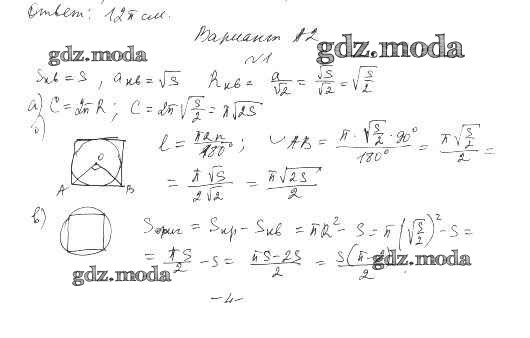 Ответ: 12π см.
Вариант А2
gdz.moda gdz.moda
№1
Sкв = S, aкв = √S Rкв = a/√2 = √S/√2 = √(S/2)
а) C = 2πR; C = 2π√(S/2) = π√2S
б) l = πRn/180°; ◡AB = π·√(S/2)·90°/180° = π√(S/2)/2 =
O
A B
= π√S/2√2 = π√2S/2
в) Sфиг = Sкр − Sкв = πR² − S = π(√(S/2))² − S =
= πS/2 − S = πS−2S/2 = S(π−2)/2
gdz.moda gdz.moda
−4−